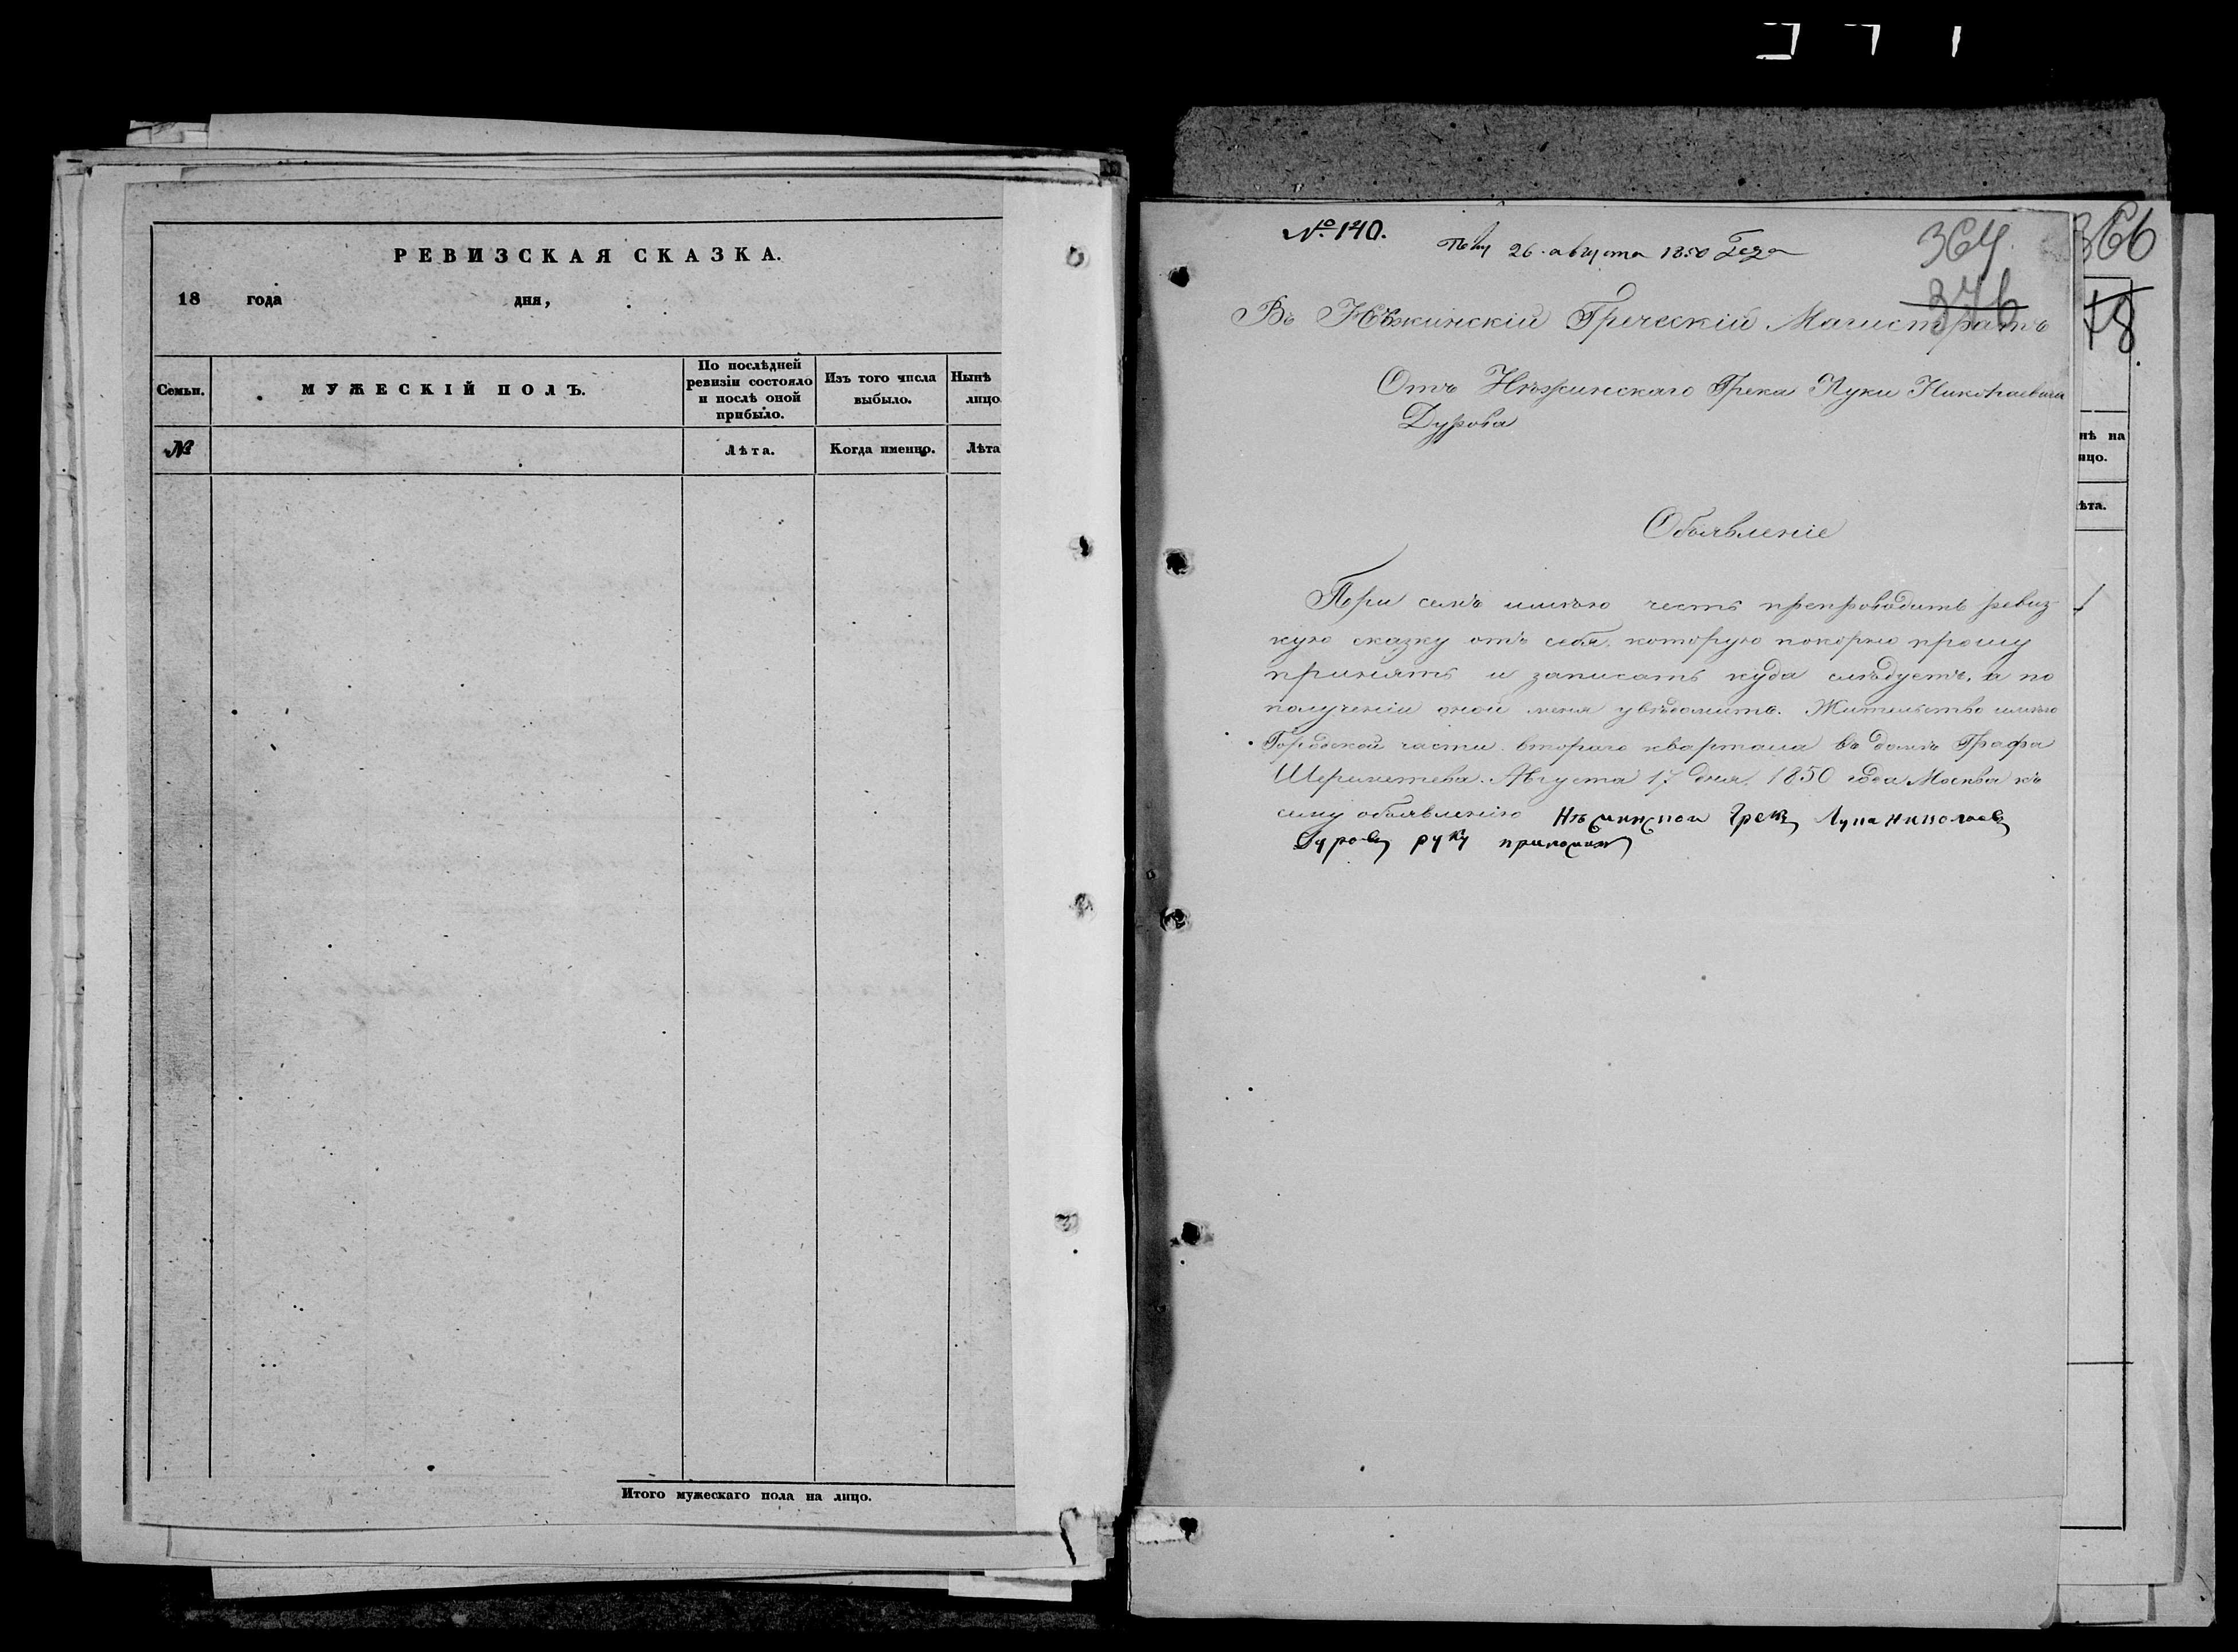 РЕВИЗСКАЯ СКАЗКА.
18 года дня,
Семьи.
МУЖЕСКІЙ ПОЛЪ.
По послѣдней
ревизіи состояло
и послѣ оной
прибыло.
Изъ того числа
выбыло.
Нынѣ
лицо
№
Лѣта.
Когда именно.
Лѣта
Итого мужескаго пола на лицо.
№ 140.
26 августа 1850 Года
364.
376
Въ Нѣжинскій Греческій Магистратъ
Отъ Нѣжинскаго Грека Луки Николаевича
Дурова
Объявленіе
При семъ имѣю честь препроводить ревиз
кую сказку отъ себя, которую покорно прошу
принять и записать куда слѣдуетъ, а по
полученіи оной меня увѣдомить. Жительство имѣю
Городской части втораго квартала въ домѣ Графа
Шереметева. Августа 17 дня 1850 года Москва къ
сему объявленію Нѣжинской Грекъ Лука Николаевъ
Дуровъ руку приложилъ
366
18
нѣ на
ицо.
ѣта.